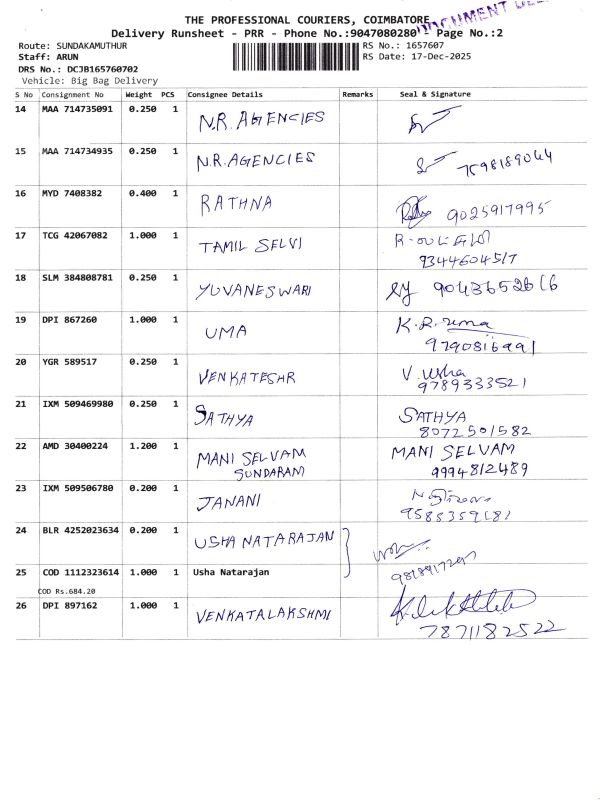 THE PROFESSIONAL COURIERS, COIMBATORE
DOCUMENT
Delivery Runsheet - PRR - Phone No.:9047080280 - Page No.:2
Route: SUNDAKAMUTHUR
RS No.: 1657607
Staff: ARUN
RS Date: 17-Dec-2025
DRS No.: DCJB165760702
Vehicle: Big Bag Delivery
S No Consignment No Weight PCS Consignee Details Remarks Seal & Signature
14 MAA 714735091 0.250 1 N.R. AGENCIES
15 MAA 714734935 0.250 1 N.R. AGENCIES 7598189044
16 MYD 7408382 0.400 1 RATHNA 9025917995
17 TCG 42067082 1.000 1 TAMIL SELVI
9344604517
18 SLM 384808781 0.250 1 YUVANESWARI
19 DPI 867260 1.000 1 UMA K.R. uma
9790816991
20 YGR 589517 0.250 1 VENKATESHR V. usha
9789333521
21 IXM 509469980 0.250 1 SATHYA SATHYA
8072501582
22 AMD 30400224 1.200 1 MANI SELVAM MANI SELVAM
SUNDARAM 9994812489
23 IXM 509506780 0.200 1 JANANI
9585359181
24 BLR 4252023634 0.200 1 USHA NATARAJAN
25 COD 1112323614 1.000 1 Usha Natarajan
COD Rs.684.20
26 DPI 897162 1.000 1 VENKATALAKSHMI
7871182522